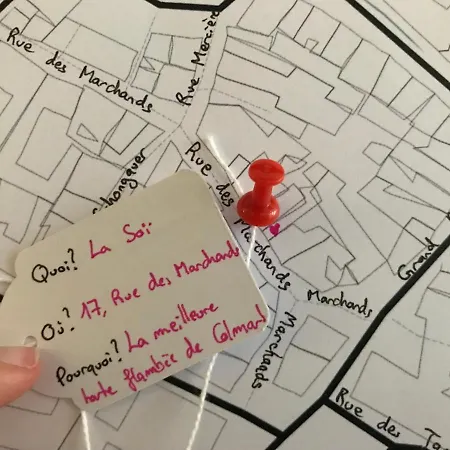 Rue des Marchands
Rue Mercière
Schongauer
Rue des
Marchands
Marchands
Marchands
Grand
Rue des Ta
Quoi? La Soï
Où? 17, Rue des Marchands
Pourquoi? La meilleure
tarte flambée de Colmar!